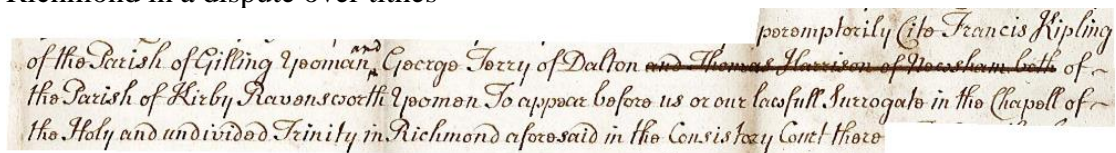 Richmond in a dispute over tithes
peremptorily Cite Francis Kipling
of the Parish of Gilling Yeoman and George Terry of Dalton and Thomas Harrison of Newsham both of
the Parish of Kirby Ravensworth Yeomen To appear before us or our lawfull Surrogate in the Chapell of
the Holy and undivided Trinity in Richmond aforesaid in the Consistory Court there